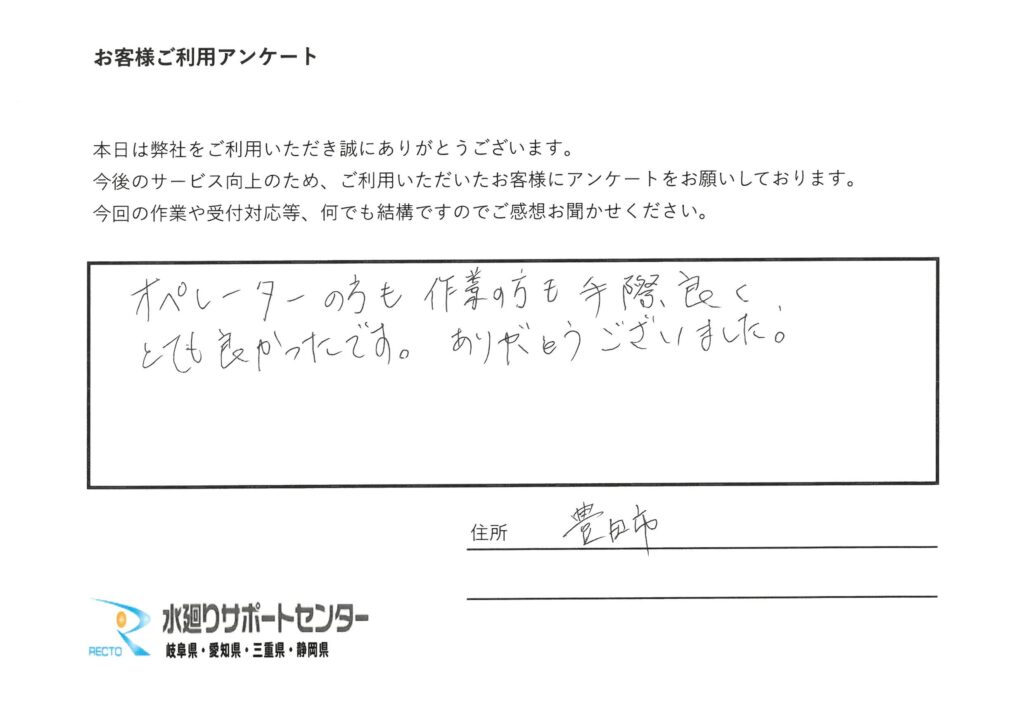 お客様ご利用アンケート
本日は弊社をご利用いただき誠にありがとうございます。
今後のサービス向上のため、ご利用いただいたお客様にアンケートをお願いしております。
今回の作業や受付対応等、何でも結構ですのでご感想お聞かせください。
オペレーターの方も 作業の方も 手際良く
とても良かったです。 ありがとうございました。
住所 豊田市
RECTO 水廻りサポートセンター
岐阜県・愛知県・三重県・静岡県